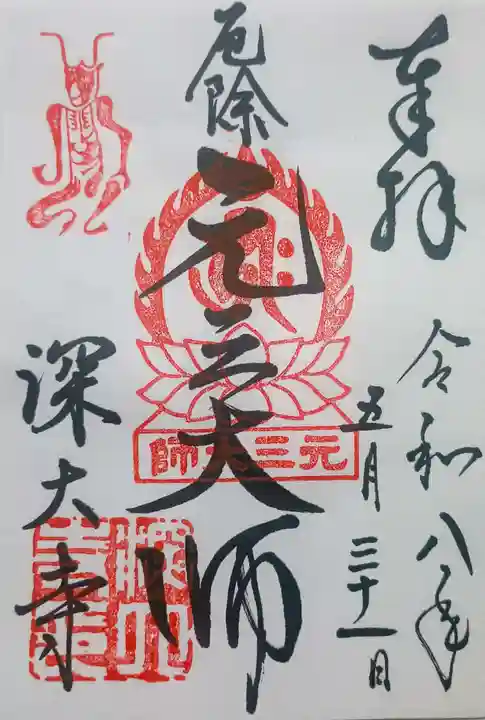 奉拝
令和八年
五月三十一日
厄除
元三大師
元三大師
深大寺